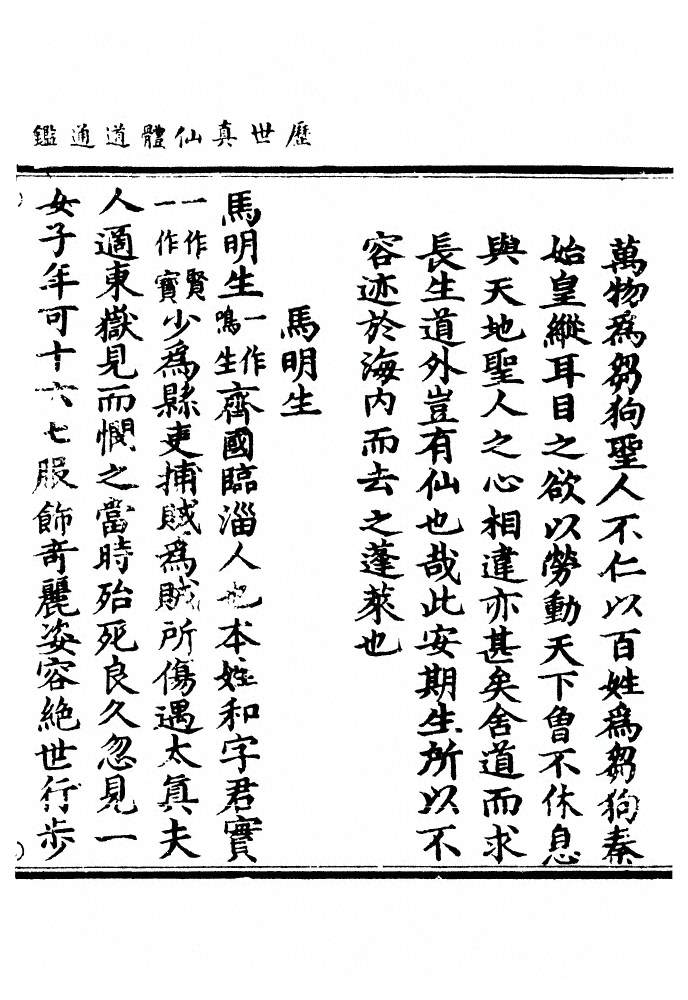 歷世真仙體道通鑑
萬物爲芻狗聖人不仁以百姓爲芻狗秦
始皇縱耳目之欲以勞動天下曾不休息
與天地聖人之心相違亦甚矣舍道而求
長生道外豈有仙也哉此安期生所以不
容迹於海內而去之蓬萊也
馬明生
馬明生一作鳴生齊國臨淄人也本姓和字君實
一作賢一作寶少爲縣吏捕賊爲賊所傷遇太真夫
人適東嶽見而憫之當時殆死良久忽見一
女子年可十六七服飾奇麗姿容絕世行步